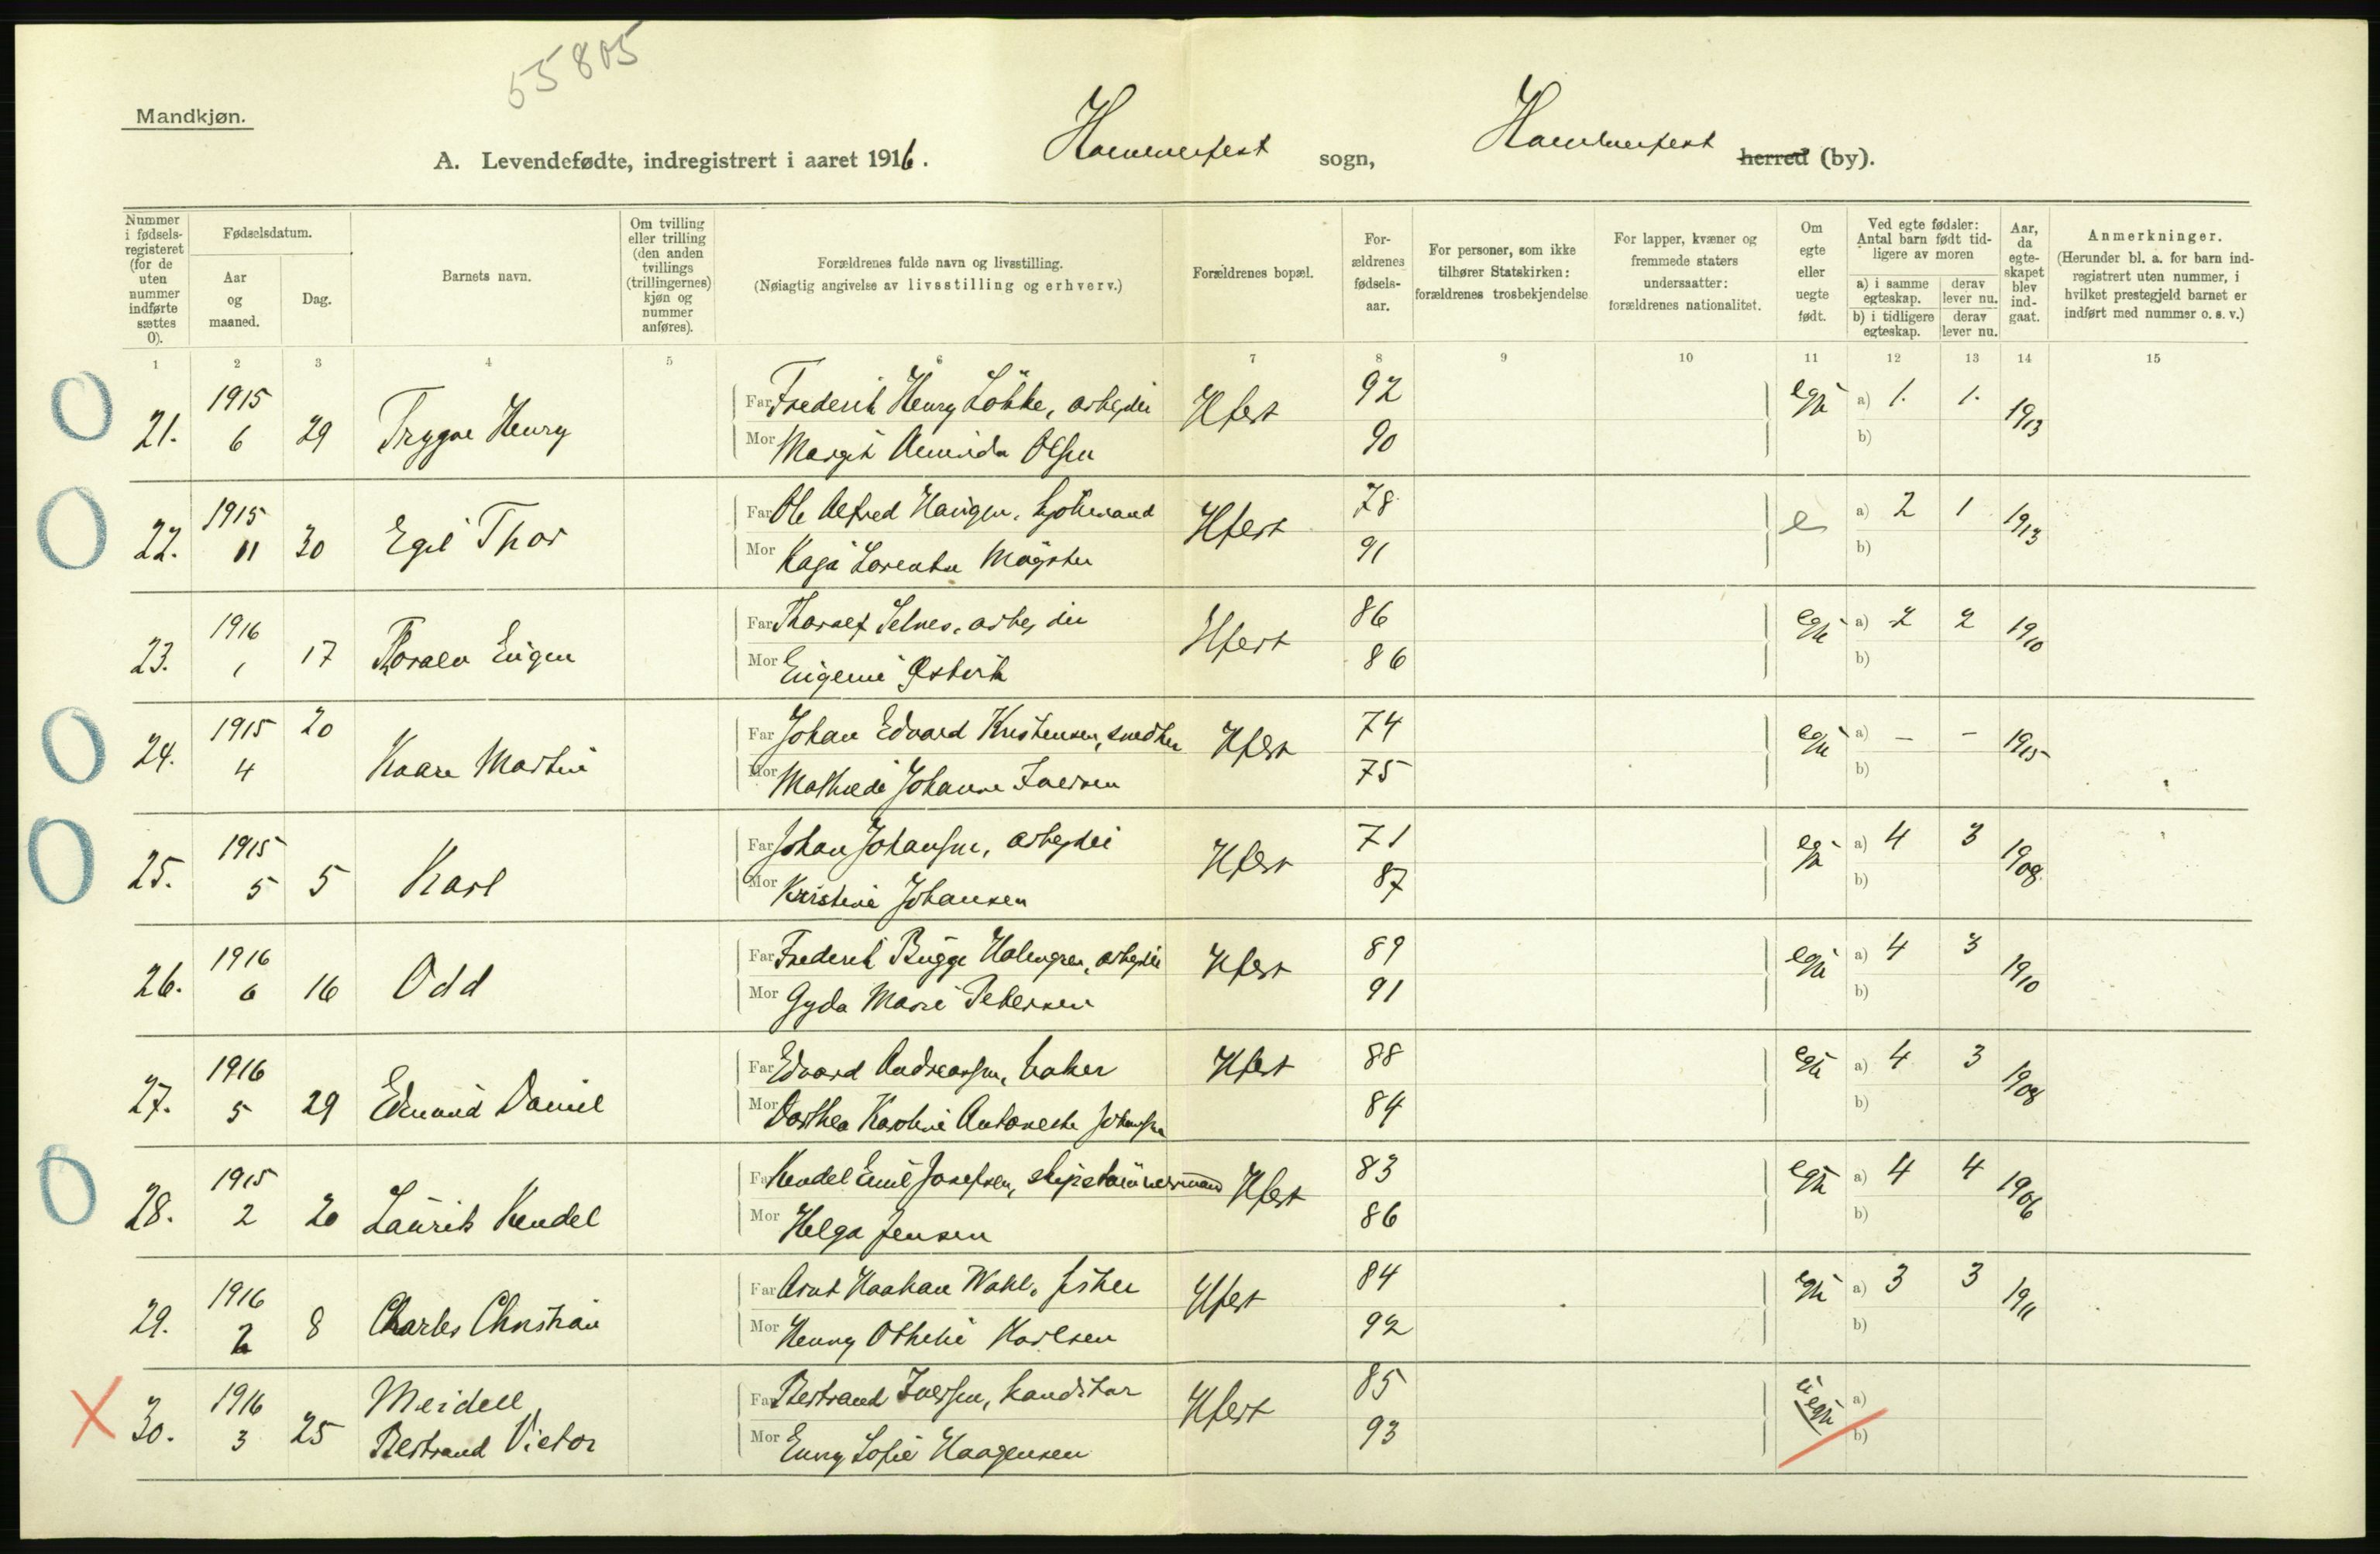 55805
Mandkjøn.
A. Levendefødte, indregistrert i aaret 1916. Hammerfest sogn, Hammerfest herred (by).
Nummer i fødsels-registeret (for de uten nummer indførte sættes 0).
Fødselsdatum.
Aar og maaned.
Dag.
Barnets navn.
Om tvilling eller trilling (den anden tvillings (trillingernes) kjøn og nummer anføres).
Forældrenes fulde navn og livsstilling.
(Nøiagtig angivelse av livsstilling og erhverv.)
Forældrenes bopæl.
For-ældrenes fødsels-aar.
For personer, som ikke tilhører Statskirken: forældrenes trosbekjendelse
For lapper, kvæner og fremmede staters undersaatter: forældrenes nationalitet.
Om egte eller uegte født.
Ved egte fødsler: Antal barn født tid-ligere av moren
a) i samme egteskap.
b) i tidligere egteskap.
derav lever nu.
derav lever nu.
Aar, da egte-skapet blev ind-gaat.
Anmerkninger.
(Herunder bl. a. for barn ind-registrert uten nummer, i hvilket prestegjeld barnet er indført med nummer o. s. v.)
1 2 3 4 5 6 7 8 9 10 11 12 13 14 15
21. 1915 6 29 Trygve Henry Far Frederik Henry Løkke, arbeider Hfest 92 egte a) 1. 1. 1913
Mor Margit Olsen 90 b)
22. 1915 11 30 Egil Thor Far Ole Alfred sjømand Hfest 78 e a) 2 1 1913
Mor Kaja 91 b)
23. 1916 1 17 Eugen Far Selnes, arbeider Hfest 86 egte a) 2 2 1910
Mor 86 b)
24. 1915 4 20 Kaare Martin Far Johan Edvard Kristensen, Hfest 74 egte a) – – 1915
Mor Mathilde Johanne Iversen 75 b)
25. 1915 5 5 Karl Far Johan Johansen, arbeider Hfest 71 egte a) 4 3 1908
Mor Kristine Johansen 87 b)
26. 1916 6 16 Odd Far Frederik Bugge Holmgren, arbeider Hfest 89 egte a) 4 3 1910
Mor Gyda Marie Petersen 91 b)
27. 1916 5 29 Edmund Daniel Far Edvard Andreassen, baker Hfest 88 egte a) 4 3 1908
Mor Dorthea Karoline Antonette Johansen 84 b)
28. 1915 2 20 Laurits Kendel Far Kendel Emil Josefsen, skipstømmermand Hfest 83 egte a) 4 4 1906
Mor Helga Jensen 86 b)
29. 1916 2 8 Charles Christian Far Arnt Haakon Wahl, fisker Hfest 84 egte a) 3 3 1911
Mor Henny Othelie Karlsen 92 b)
30. 1916 3 25 Meidell Bertrand Victor Far Bertrand Iversen, konditor Hfest 85 uegte a)
Mor Enny Sofie Haagensen 93 b)